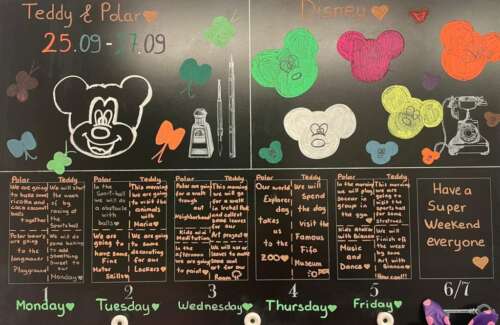 Teddy & Polar
25.09 - 27.09
Disney
Polar
We are going to have some rice and coco
together
Polar bears are going to the longhouse Playground
Teddy
We will start the week of by racing at the Sportsball
We will do some baking to add something sweet to our Monday
In the Sportsball we will do a obstacle with balls
We are going to have some Fine Motor Skills
Teddy
This morning we are going to visit the animals with Maria
We are going to some parenting for our Lockers
Polar
Polar are going for a walk through out Neighborhood
Kids and Meditation
In the afternoon we are going to paint
Teddy
This morning we will go for a walk in
and collect some leaves for our Art project
We will use our leaves to make some cool art for our Room
Polar
Our world Explorer day takes us to the ZOO
Teddy
We will Spend the day visit the Famous Fifa Museum
Polar
In the morning we will play Soccer in group in the gym
Kids Atelie with Bianca
Music and Dance
Teddy
This morning we are going to visit the sportsball for some
We will Finish off the week by some Art with Bianca
How cool!
Have a Super Weekend everyone
1 2 3 4 5 6/7
Monday Tuesday Wednesday Thursday Friday